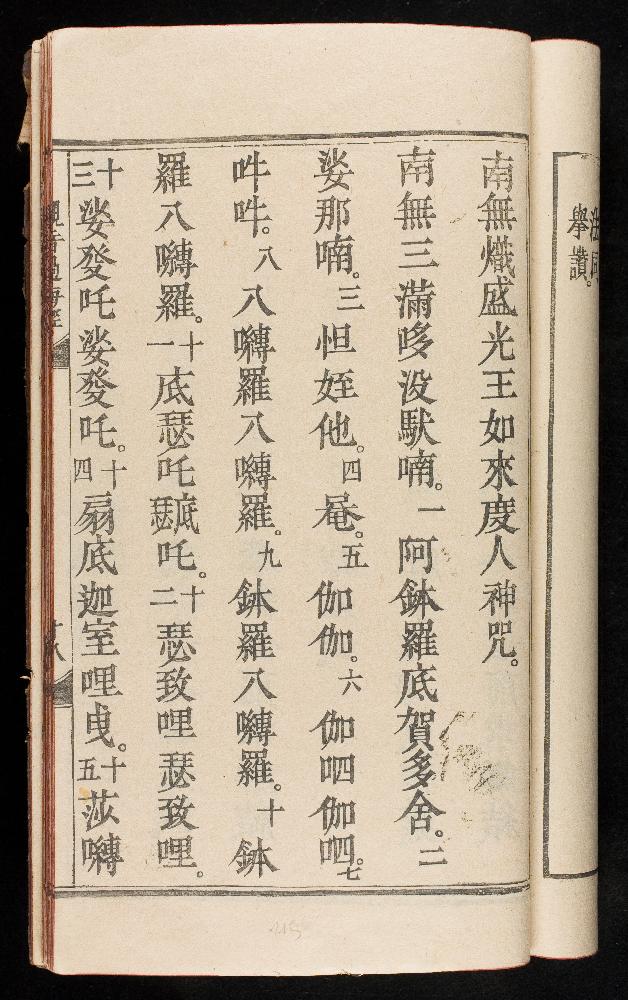 舉讚。
南無熾盛光王如來度人神咒。
南無三滿哆没䭾喃。一阿鉢羅底賀多舍。二
娑那喃。三怛姪他。四唵。五伽伽。六伽呬伽呬。七
吽吽。八入嚩羅入嚩羅。九鉢羅入嚩羅。十鉢
羅入嚩羅。十一底瑟吒底瑟吒。十二瑟致哩瑟致哩。
十三娑癹吒娑癹吒。十四扇底迦室哩曳。十五莎嚩